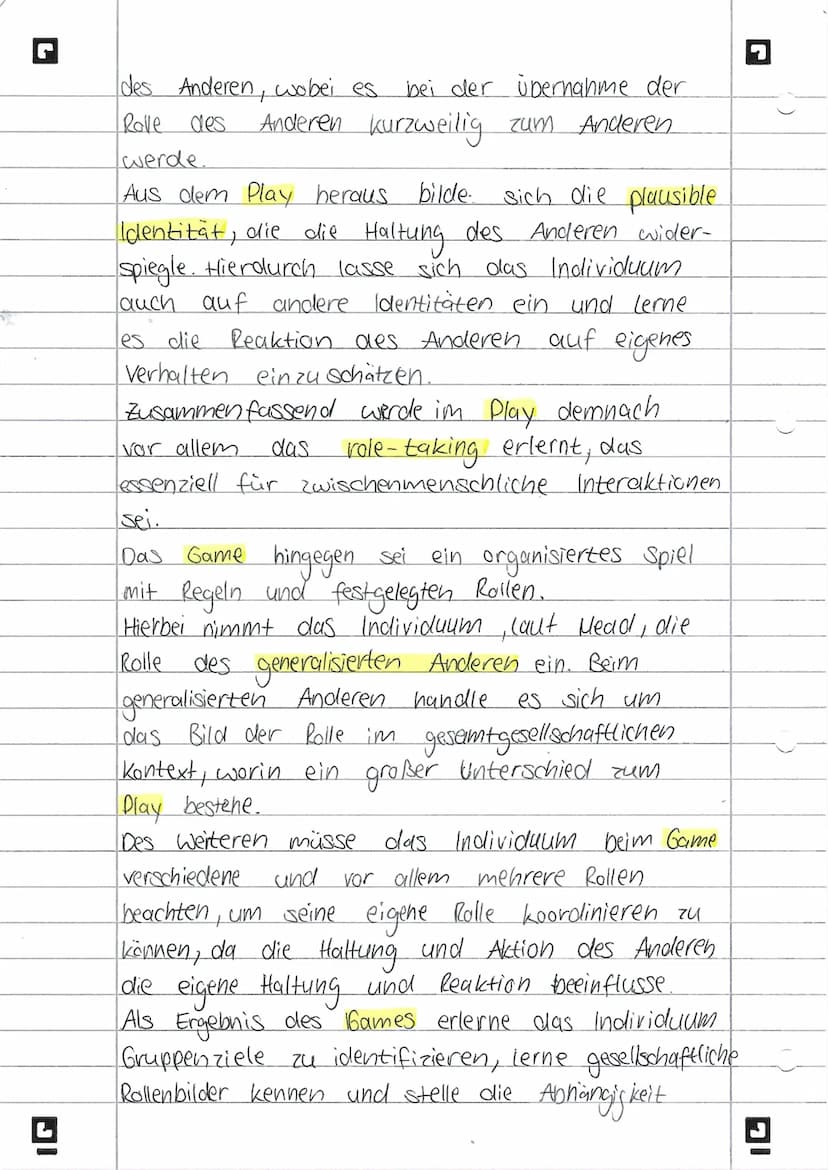 des Anderen, wobei es bei der übernahme der
Rolle des Anderen kurzweilig zum Anderen
werde.
Aus dem Play heraus bilde sich die plausible
Identität, die die Haltung des Anderen wider-
spiegle. Hierdurch lasse sich das Individuum
auch auf andere Identitäten ein und lerne
es die Reaktion des Anderen auf eigenes
Verhalten einzuschätzen.
Zusammenfassend werde im Play demnach
vor allem das role-taking erlernt, das
essenziell für zwischenmenschliche Interaktionen
sei.
Das Game hingegen sei ein organisiertes Spiel
mit Regeln und festgelegten Rollen.
Hierbei nimmt das Individuum, laut Mead, die
Rolle des generalisierten Anderen ein. Beim
generalisierten Anderen handle es sich um
das Bild der Rolle im gesamtgesellschaftlichen
Kontext, worin ein großer Unterschied zum
Play bestehe.
Des weiteren müsse das Individuum beim Game
verschiedene und vor allem mehrere Rollen
beachten, um seine eigene Rolle koordinieren zu
können, da die Haltung und Aktion des Anderen
die eigene Haltung und Reaktion beeinflusse.
Als Ergebnis des Games erlerne das Individuum
Gruppenziele zu identifizieren, lerne gesellschaftliche
Rollenbilder kennen und stelle die Abhängigkeit